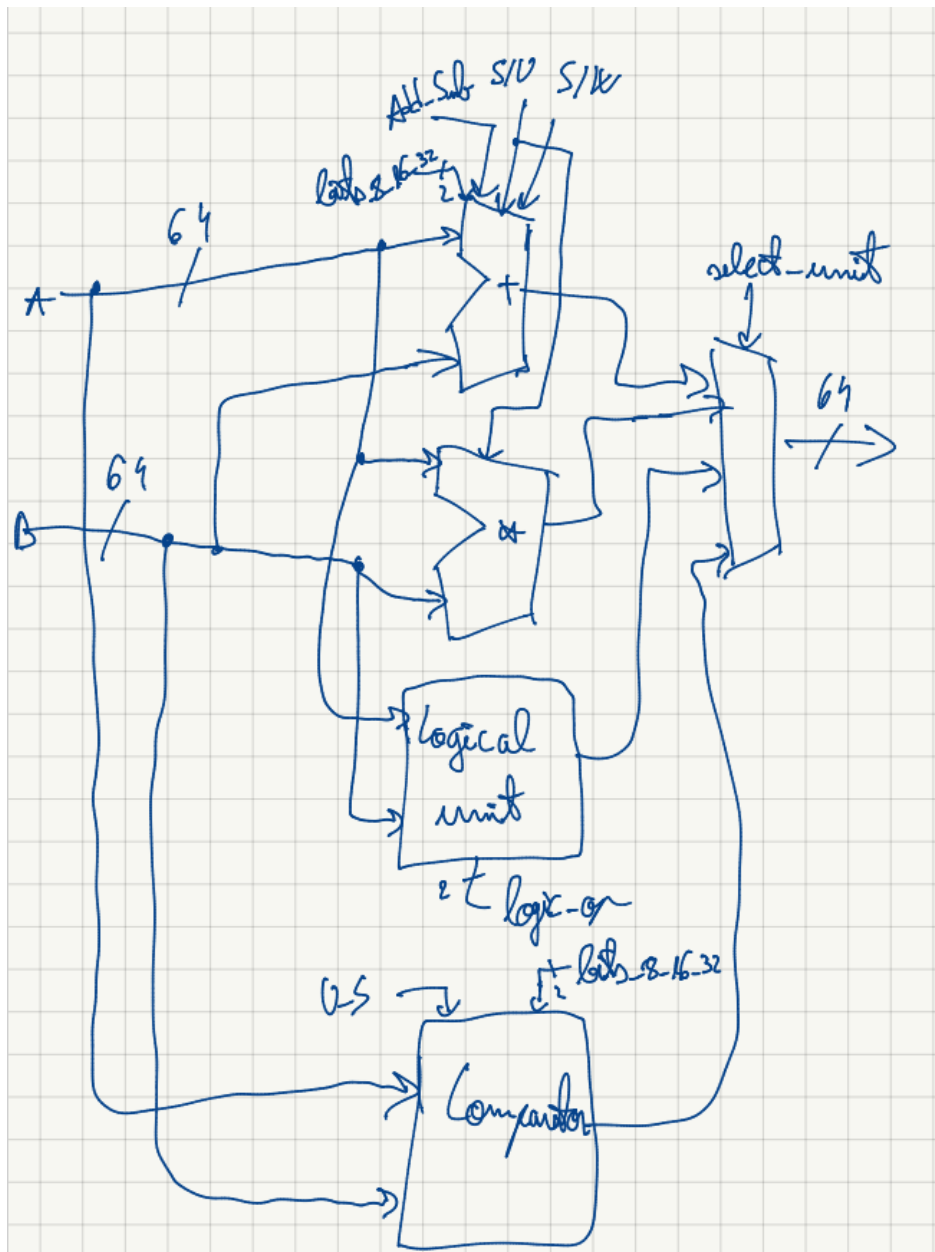 Add_Sub S/U S/W
bits_8_16_32
2
64
A
+
select_unit
64
64
B
*
Logical
unit
2
logic_op
U_S
2
bits_8_16_32
Comparator